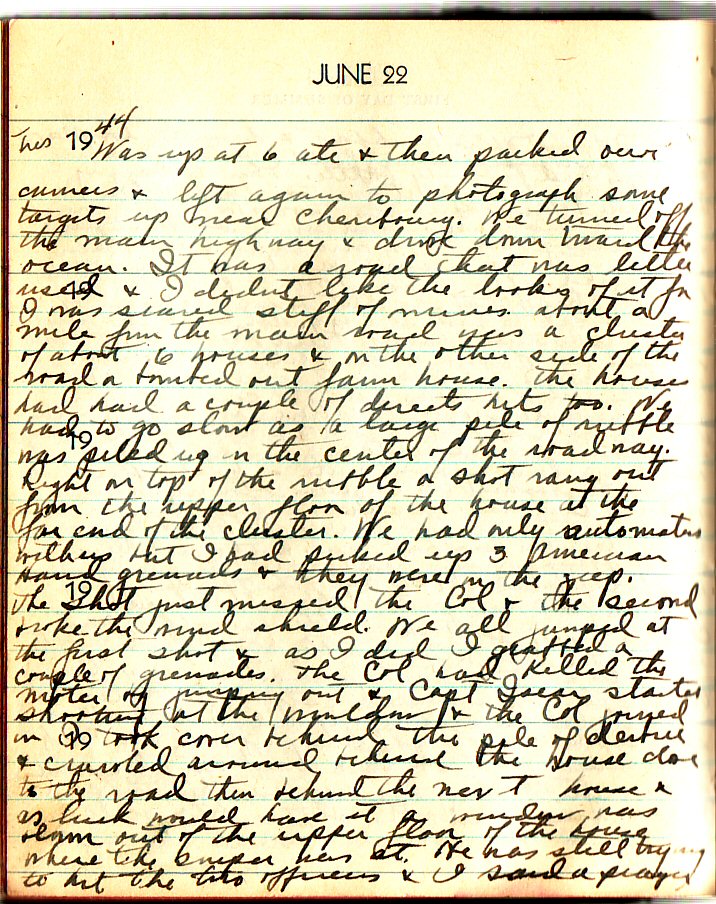 JUNE 22
1944
Was up at 6 ate & then packed our
cameras & left again to photograph some
targets up near Cherbourg. We turned off
the main highway & drove down toward the
ocean. It was a road that was little
used & I didn't like the looks of it for
I was scared stiff of mines. about a
mile from the main road was a cluster
of about 6 houses & on the other side of the
road a bombed out farm house. The houses
had had a couple of directs hits too. We
had to go slow as a large pile of rubble
was piled up in the center of the roadway.
Right on top of the rubble a shot rang out
from the upper floor of the house at the
far end of the cluster. We had only automatics
with us but I had picked up 3 American
hand grenads & they were in the jeep.
The shot just missed the Col & the second
broke the wind shield. We all jumped at
the first shot & as I did I grabbed a
couple of grenades. The Col had killed the
moter by jumping out & Capt started
shooting at the window & the Col joined
in I took cover behind the pile of debrie
& crawled around behind the house close
to the road then behind the next house &
as luck would have it a window was
blown out of the upper floor of the house
where the sniper was at. He was still trying
to hit the two officers & I said a prayer